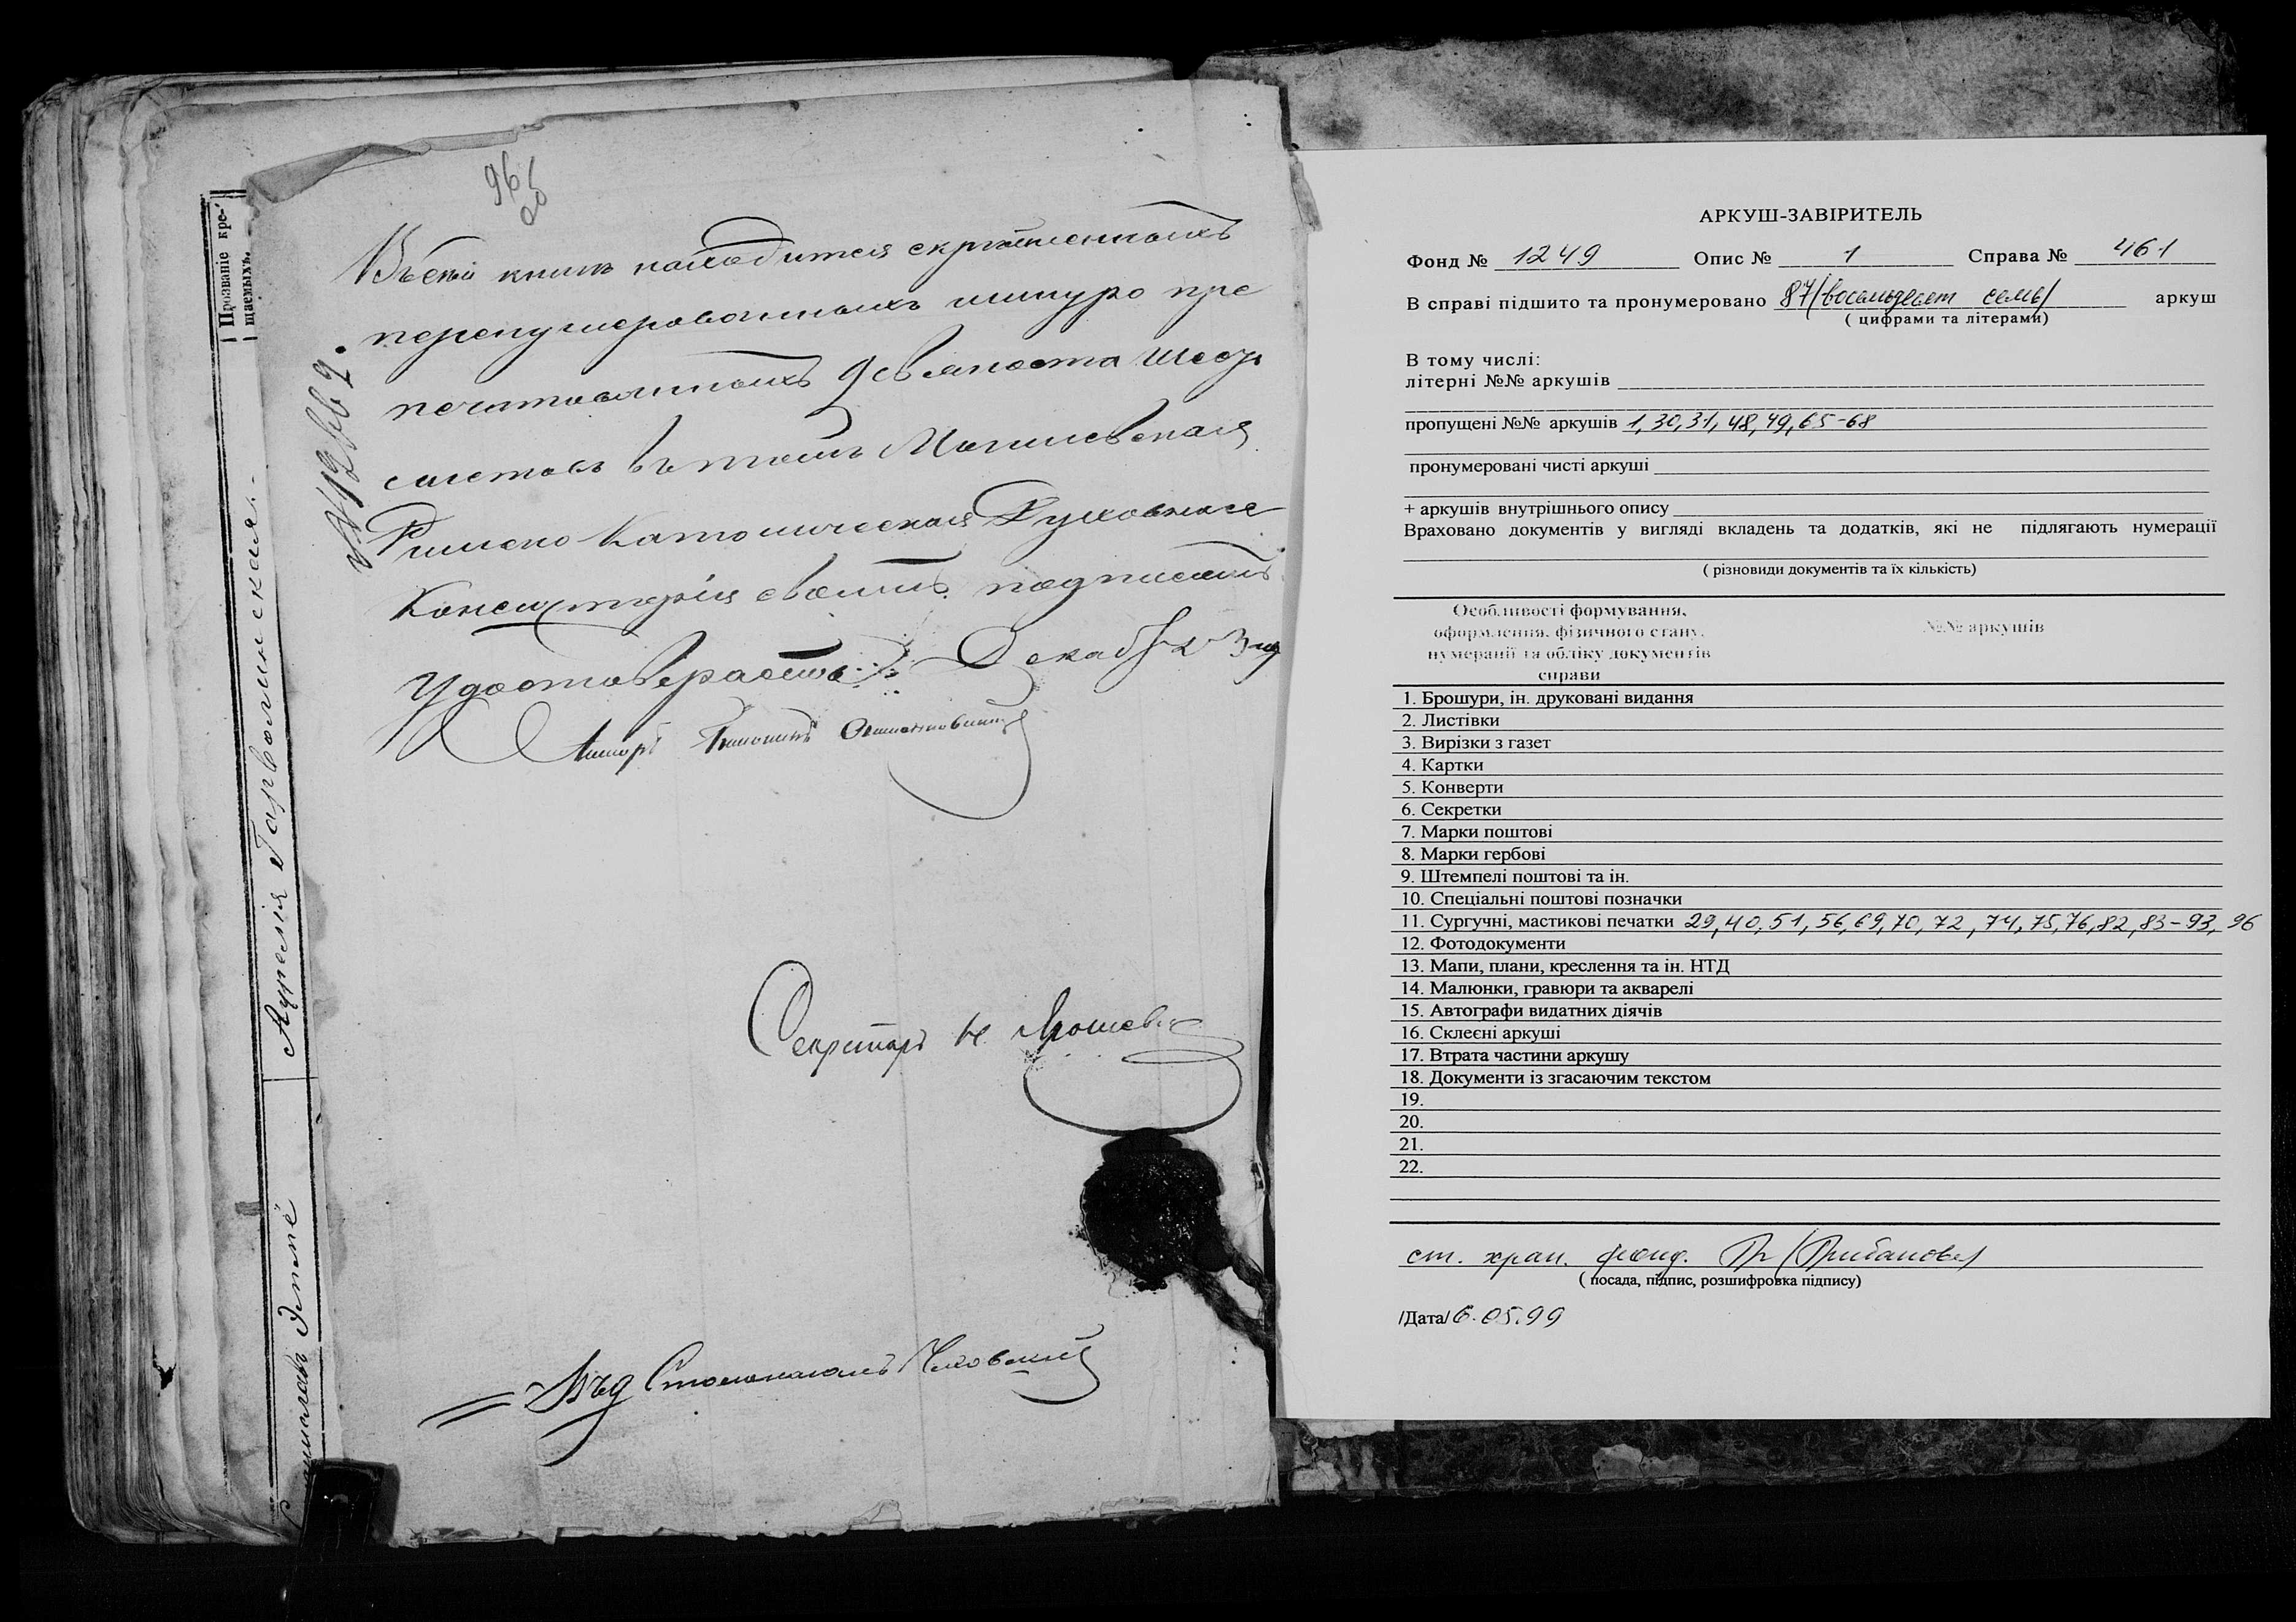 96
об
Прозваніе кре-
щаемыхъ.
Аурелія Гарволинская.
Въ сей книге находится скрѣпленныхъ
перенумерованныхъ шнуро пре
печатанныхъ девяноста шесть
листовъ въ томъ Могилевская
Римско Католическая Духовная
Консисторія своимъ подписомъ
удостоверяетъ Декабря 3 дня
Секретарь
АРКУШ-ЗАВІРИТЕЛЬ
Фонд № 1249 Опис № 1 Справа № 461
В справі підшито та пронумеровано 87/восемьдесят семь/ аркуш
( цифрами та літерами)
В тому числі:
літерні №№ аркушів
пропущені №№ аркушів 1,30,31,48,49,65-68
пронумеровані чисті аркуші
+ аркушів внутрішнього опису
Враховано документів у вигляді вкладень та додатків, які не підлягають нумерації
( різновиди документів та їх кількість)
Особливості формування, №№ аркушів
оформлення, фізичного стану,
нумерації та обліку документів
справи
1. Брошури, ін. друковані видання
2. Листівки
3. Вирізки з газет
4. Картки
5. Конверти
6. Секретки
7. Марки поштові
8. Марки гербові
9. Штемпелі поштові та ін.
10. Спеціальні поштові позначки
11. Сургучні, мастикові печатки 29,40,51,56,69,70,72,74,75,76,82,83-93,96
12. Фотодокументи
13. Мапи, плани, креслення та ін. НТД
14. Малюнки, гравюри та акварелі
15. Автографи видатних діячів
16. Склеєні аркуші
17. Втрата частини аркушу
18. Документи із згасаючим текстом
19.
20.
21.
22.
ст. хран. фонд.
( посада, підпис, розшифровка підпису)
/Дата/ 6.05.99